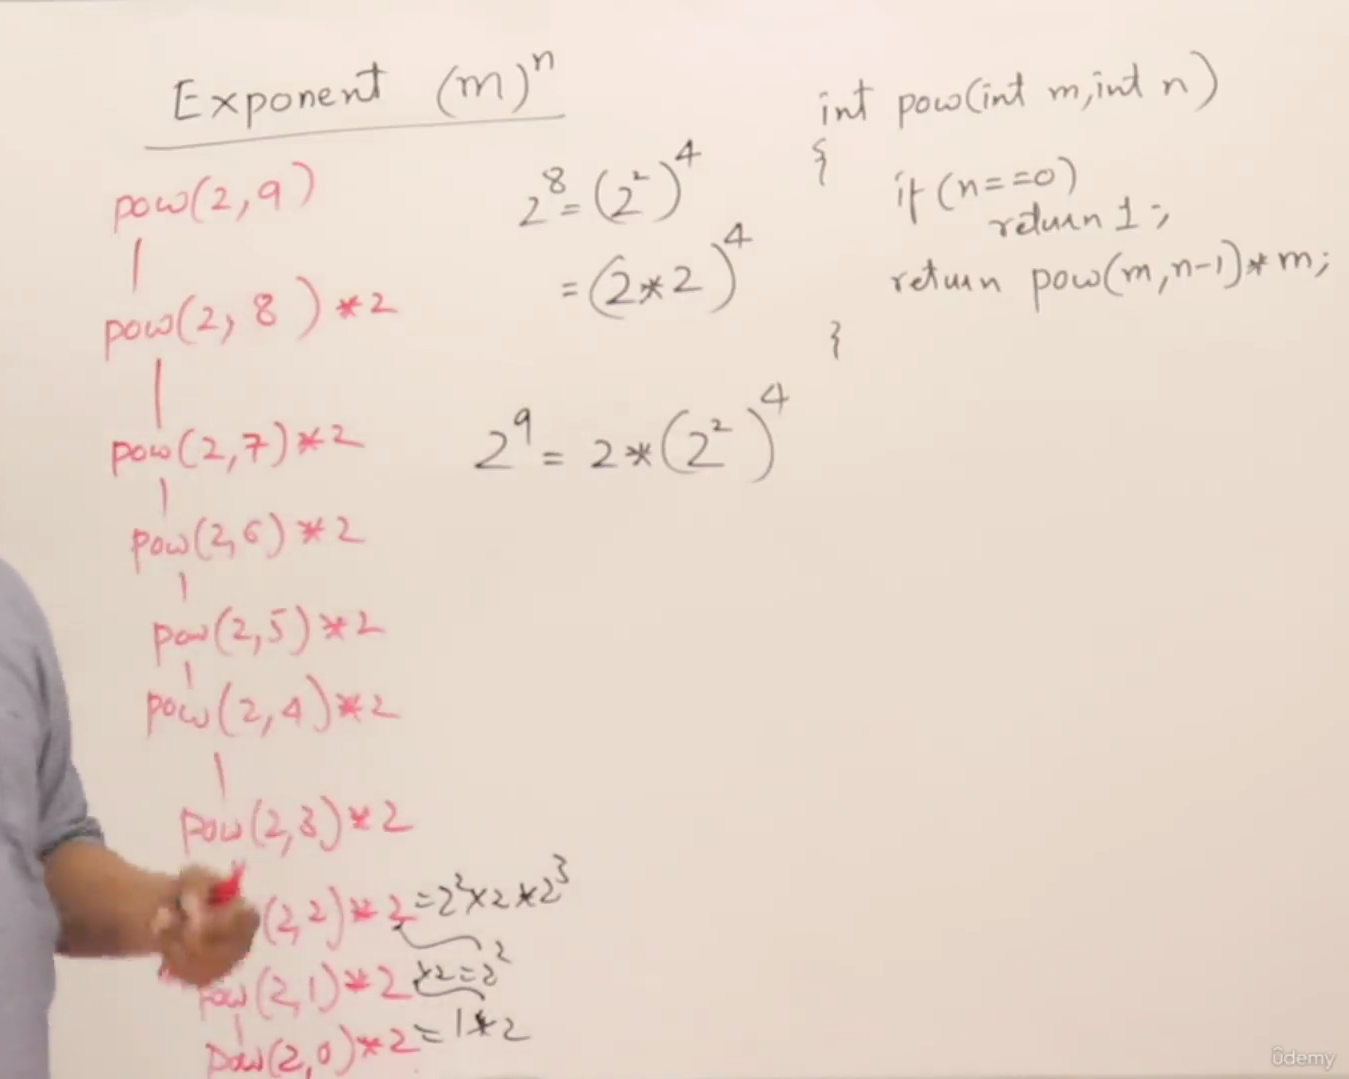 Exponent (m)ⁿ
pow(2,9)
pow(2, 8 ) *2
pow(2,7)*2
pow(2,6)*2
pow(2,5)*2
pow(2,4)*2
pow(2,3)*2
(2,2)*2 =2²×2*2³
pow(2,1)*2 ×2=2²
pow(2,0)*2 =1*2
2⁸=(2²)⁴
=(2*2)⁴
2⁹= 2*(2²)⁴
int pow(int m,int n)
{
if(n==0)
return 1;
return pow(m,n-1)*m;
}
ûdemy